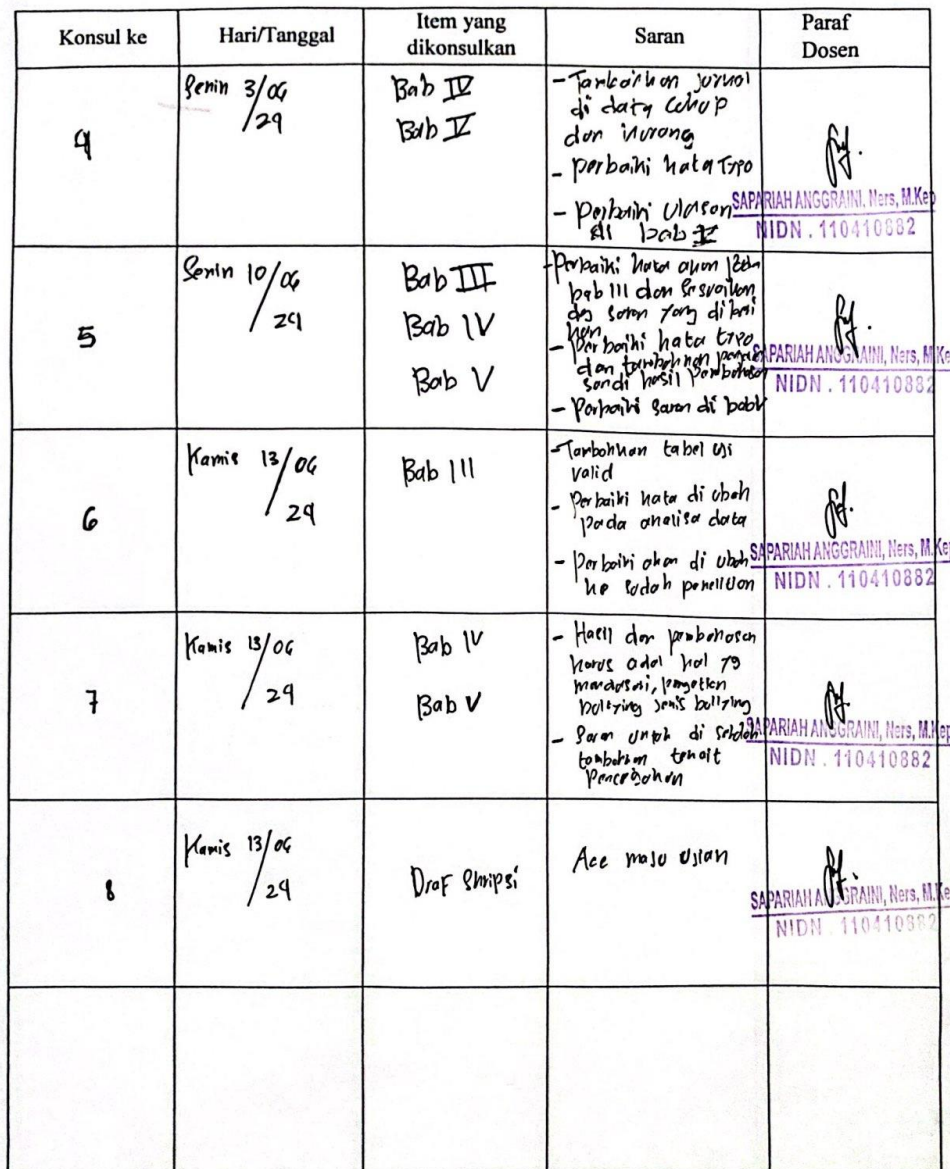 Konsul ke
Hari/Tanggal
Item yang
dikonsulkan
Saran
Paraf
Dosen
4
Senin 3/06
/24
Bab IV
Bab V
- Tambahkan jurnal
di data cukup
dan kurang
- perbaiki kata Typo
- Perbaiki ulasan
di bab V
SAPARIAH ANGGRAINI, Ners, M.Kep
NIDN . 110410882
5
Senin 10/06
/24
Bab III
Bab IV
Bab V
- Perbaiki kata akan pada
bab III dan sesuaikan
dg saran yang diberi
kan
- perbaiki kata typo
dan tambahkan
di hasil pembahasan
- Perbaiki saran di bab V
SAPARIAH ANGGRAINI, Ners, M.Ke
NIDN . 110410882
6
Kamis 13/06
/24
Bab III
- Tambahkan tabel uji
valid
- Perbaiki kata di ubah
pada analisa data
- Perbaiki akan di ubah
ke sudah penelitian
SAPARIAH ANGGRAINI, Ners, M.Kep
NIDN . 110410882
7
Kamis 13/06
/24
Bab IV
Bab V
- Hasil dan pembahasan
harus ada hal yg
mendasari,
bullying jenis bullying
- Saran untuk di sekolah
tambahkan terkait
Pencegahan
SAPARIAH ANGGRAINI, Ners, M.Kep
NIDN . 110410882
8
Kamis 13/06
/24
Draf Skripsi
Acc maju ujian
SAPARIAH ANGGRAINI, Ners, M.Ke
NIDN . 110410882